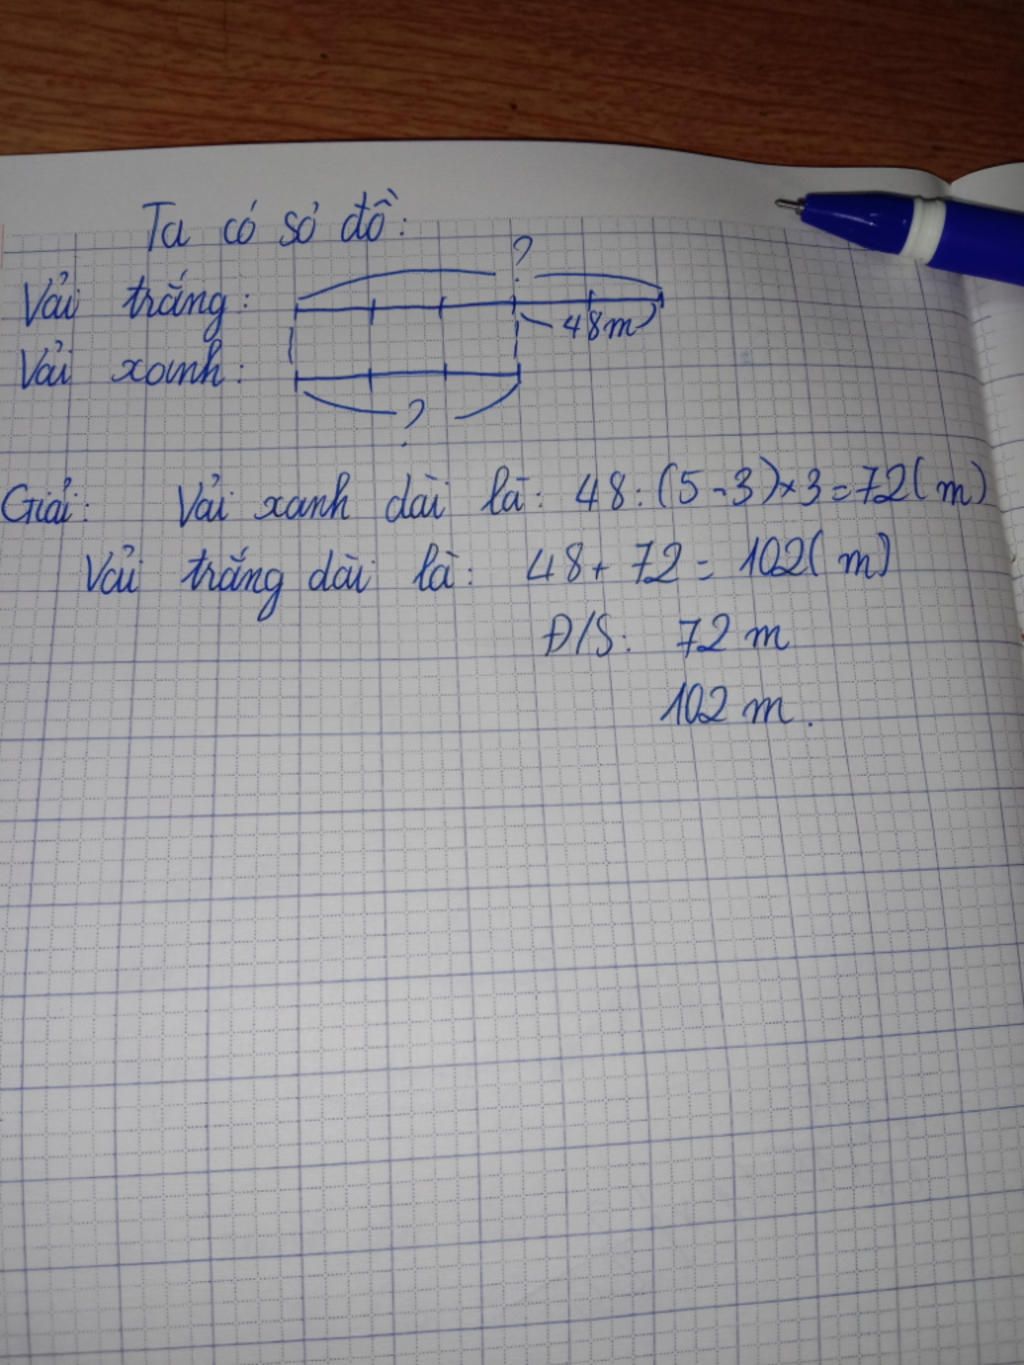 Ta có sơ đồ:
?
Vải trắng:
48m
Vải xanh:
?
Giải: Vải xanh dài là: 48:(5-3)×3=72(m)
Vải trắng dài là: 48+72=102(m)
Đ/S: 72 m
102 m.